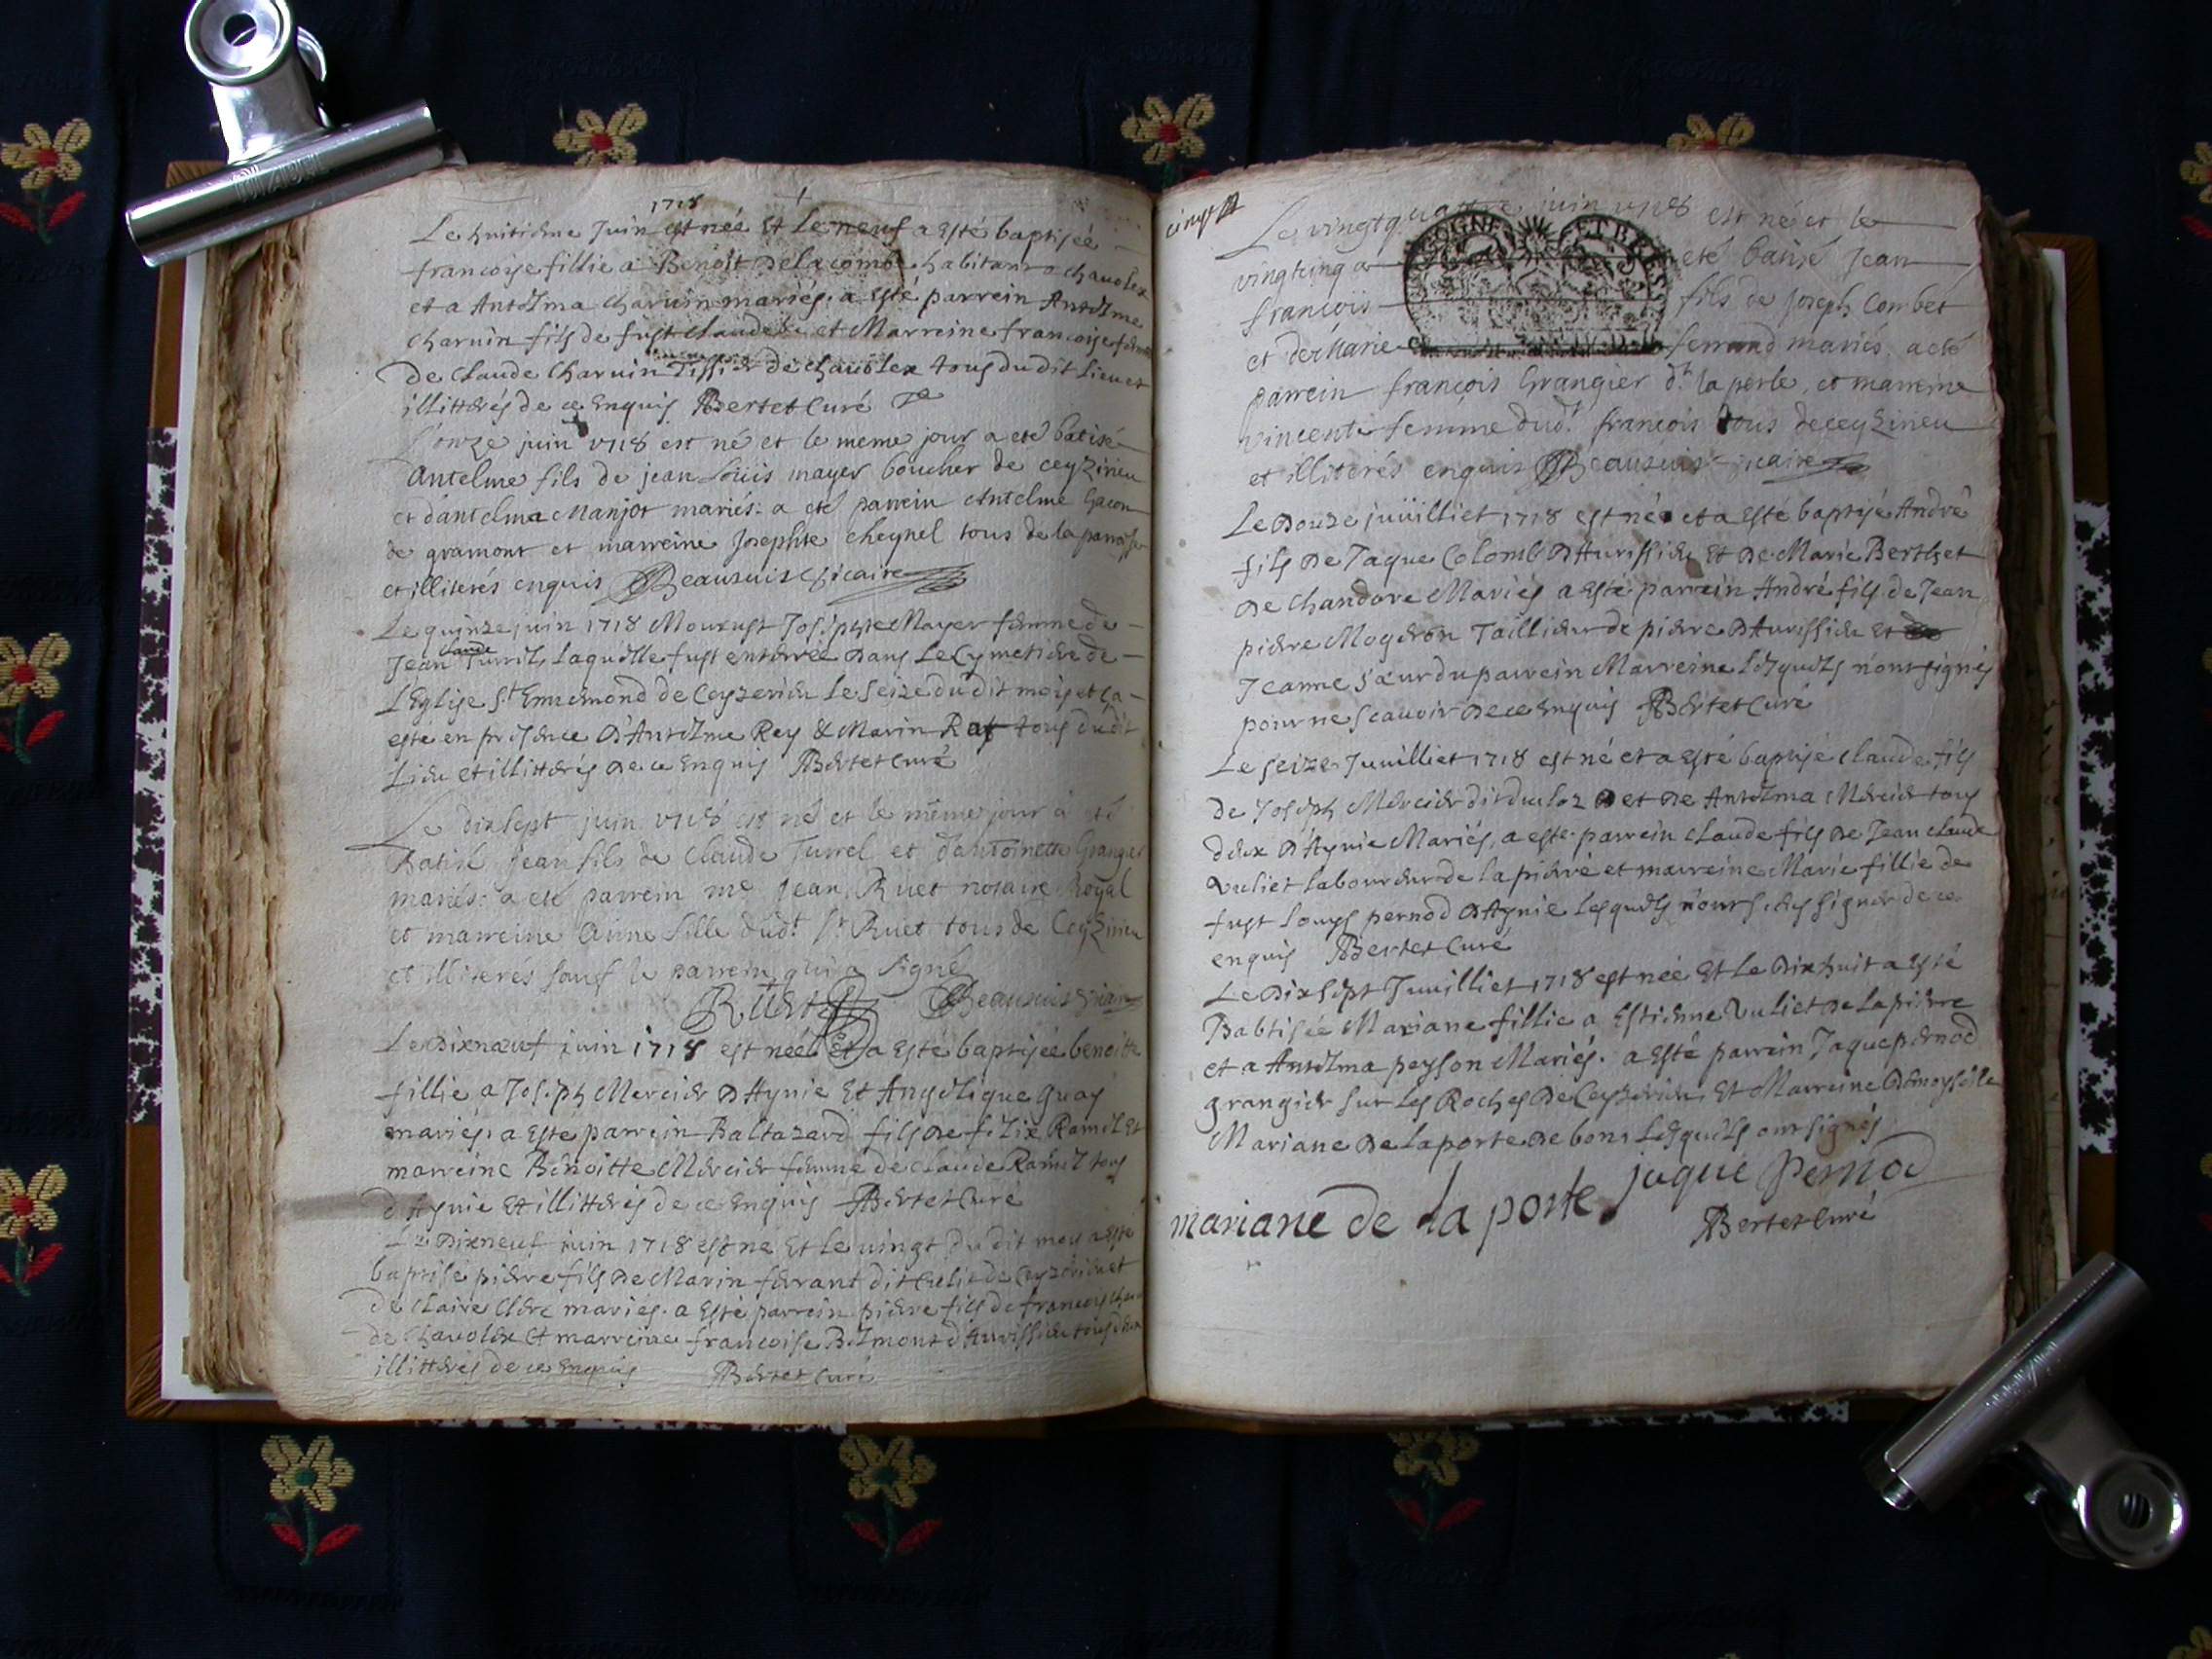 1718
Le huitième Juin est née Et Le neuf a Esté baptisée
francoise fillie a Benoit Delacombe habitant a chavolex
et a Antelma Charvin mariés. a Esté parrein Antelme
Charvin fils de fust Claude et Marreine francoise femme
de Claude Charvin Tissier de chavolex tous du dit Lieu et
illitterés de ce Enquis Bertet Curé
L'onze juin 1718 est né et le meme jour a eté batisé
Antelme fils de jean Loüis mayer boucher de ceyzirieu
et d'antelma Manjot mariés: a eté parrein Antelme Gacon
de gramont et marreine Josephte cheynel tous de la paroisse
et illiterés enquis Beausuis vicaire
Le quinze juin 1718 Mourust Josephte Mayer femme de
Jean Claude Turril, Laquelle fust enterrée dans Le Cymetiere de
L'Eglise St Ennemond de Ceyzerieu Le seize du dit mois et ça
esté en presence D'Antelme Rey & Marin Rat tous du dit
Lieu et illitterés de ce Enquis Bertet Curé
Le dixsept juin 1718 est né et le même jour à eté
Batisé jean fils de Claude Turrel et d'antoinette Grangier
mariés: a eté parrein me jean Ruet notaire Royal
et marreine Anne fille dudt sr Ruet tous de Ceyzirieu
et illiterés sauf le parrein qui a signé
Rüet Beausuis vicaire
Le Dixneuf juin 1718 est née Et a Esté baptisée benoitte
fillie a Joseph Mercier D'Aynie Et Angelique guay
mariés, a Esté parrein Baltazard fils de felix Ramel Et
marreine Benoitte Mercier femme de Claude Ramel tous
d'Aynie Et illitterés de ce Enquis Bertet Curé
Le Dixneuf juin 1718 est né Et Le vingt du dit mois a esté
baptisé pierre fils de Marin ferrant dit de Ceyzerieu et
de Claire Clerc mariés. a Esté parrein pierre fils de francois
de Chavolex Et marreine francoise Belmont d'Avrissieu tous
illitterés de ce Enquis Bertet Curé
cinqt
Le vingtquattre juin 1718 est né et le
vingtcinq a eté batisé Jean
françois fils de Joseph Combet
et de Marie ferrand mariés. a eté
parrein françois Grangier dt la perle, et marreine
vincente femme dudt françois tous de ceyzirieu
et illiterés enquis Beausuis vicaire
BOURGOGNE ET BRESSE
Le Douze juüilliet 1718 est né et a Esté baptisé André
fils de Jaque Colomb D'Avrissieu Et de Marie Berthet
de Chandore Mariés a Esté parrein André fils de Jean
pierre Mogeron Taillieur de pierre D'Avrissieu Et
Jeanne sœur du parrein Marreine Lesquels n'ont signés
pour ne scavoir de ce enquis Bertet Curé
Le seize Juuilliet 1718 est né et a Esté baptisé claude fils
de Joseph Mercier dit ducloz et de Antelma Mercier tous
deux D'Aynie Mariés, a esté parrein claude fils de Jean claude
Vuliet Labourdeur de la pierre et marreine Marie fillie de
fust Louys pernod D'Aynie Lesquels n'ont signer de ce
enquis Bertet Curé
Le Dixsept Juuilliet 1718 est née Et Le Dixhuit a Esté
Babtisée Mariane fillie a Estienne Vuliet de Lapierre
et a Antelma peyson Mariés. a Esté parrein Jaque pernod
grangier sur Les Roches de Ceyzerieu Et Marreine Demoyselle
Mariane de Laporte de bons Lesquels ont signés
mariane de la porte jaque pernod
Bertet Curé